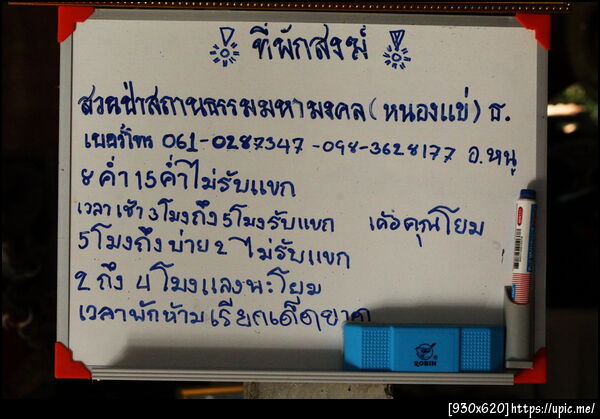 ที่พักสงฆ์
สวนป่าสถานธรรมมหามงคล (หนองแข่) ธ.
เบอร์โทร 061-0287347 -098-3628177 อ.หนู
8 ค่ำ 15 ค่ำไม่รับแขก
เวลาเช้า 3โมงถึง 5โมงรับแขก เด้อคุณโยม
5โมงถึง บ่าย 2 ไม่รับแขก
2 ถึง 4 โมงแลงนะโยม
เวลาพักห้ามเรียกเด็ดขาด
ROBIN
[930x620]https://upic.me/